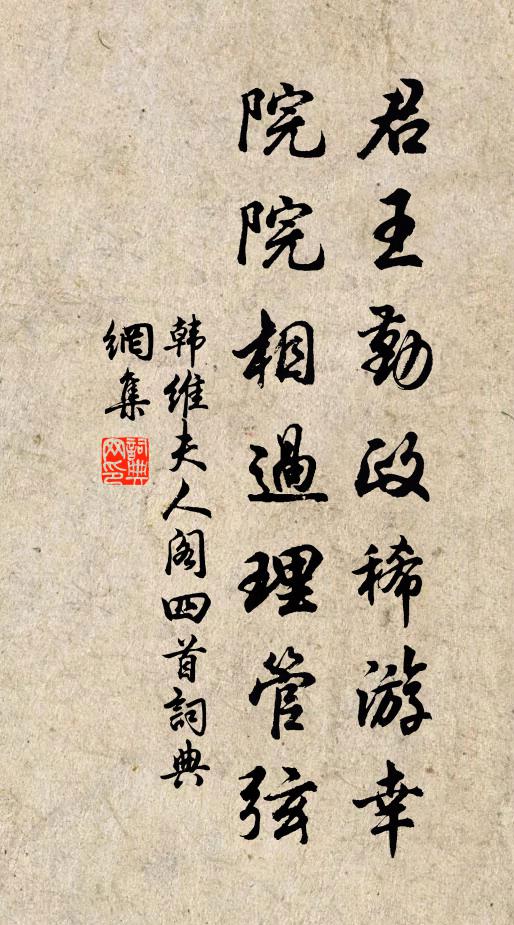 君王勤政稀游幸
院院相過理管弦
韩維夫人阁四首詞典
網集
詞典网印